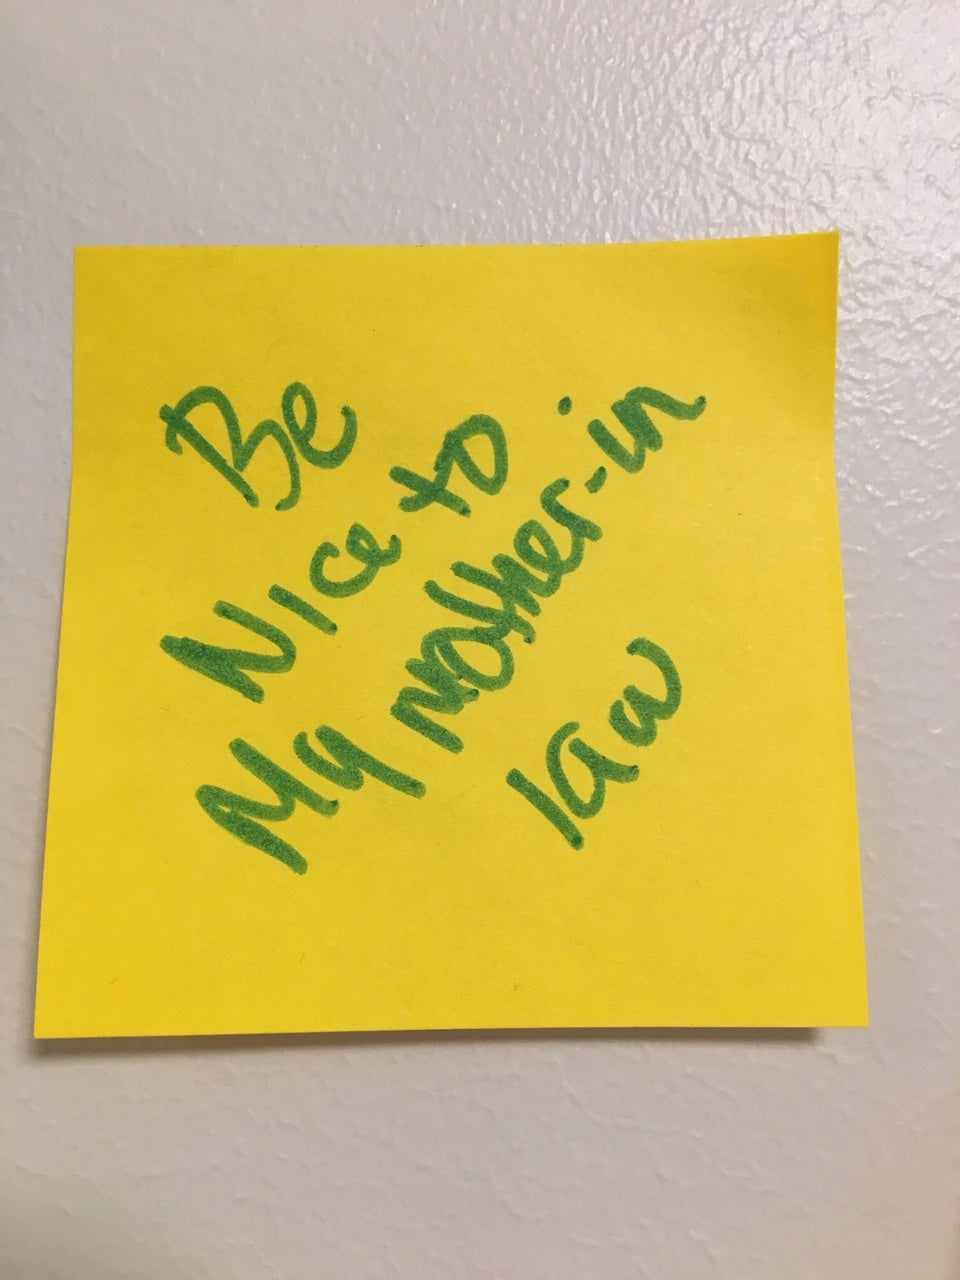 Be
Nice to
My mother-in
law